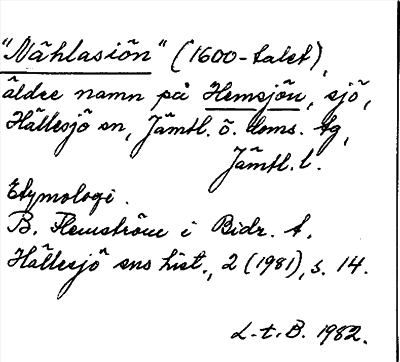 "Nåhlasiön" (1600-talet),
äldre namn på Hemsjön, sjö,
Hällesjö sn, Jämtl. ö. doms. tg,
Jämtl. l.
Etymologi.
B. Flemström i Bidr. t.
Hällesjö sns hist., 2 (1981), s. 14.
L-t. B. 1982.